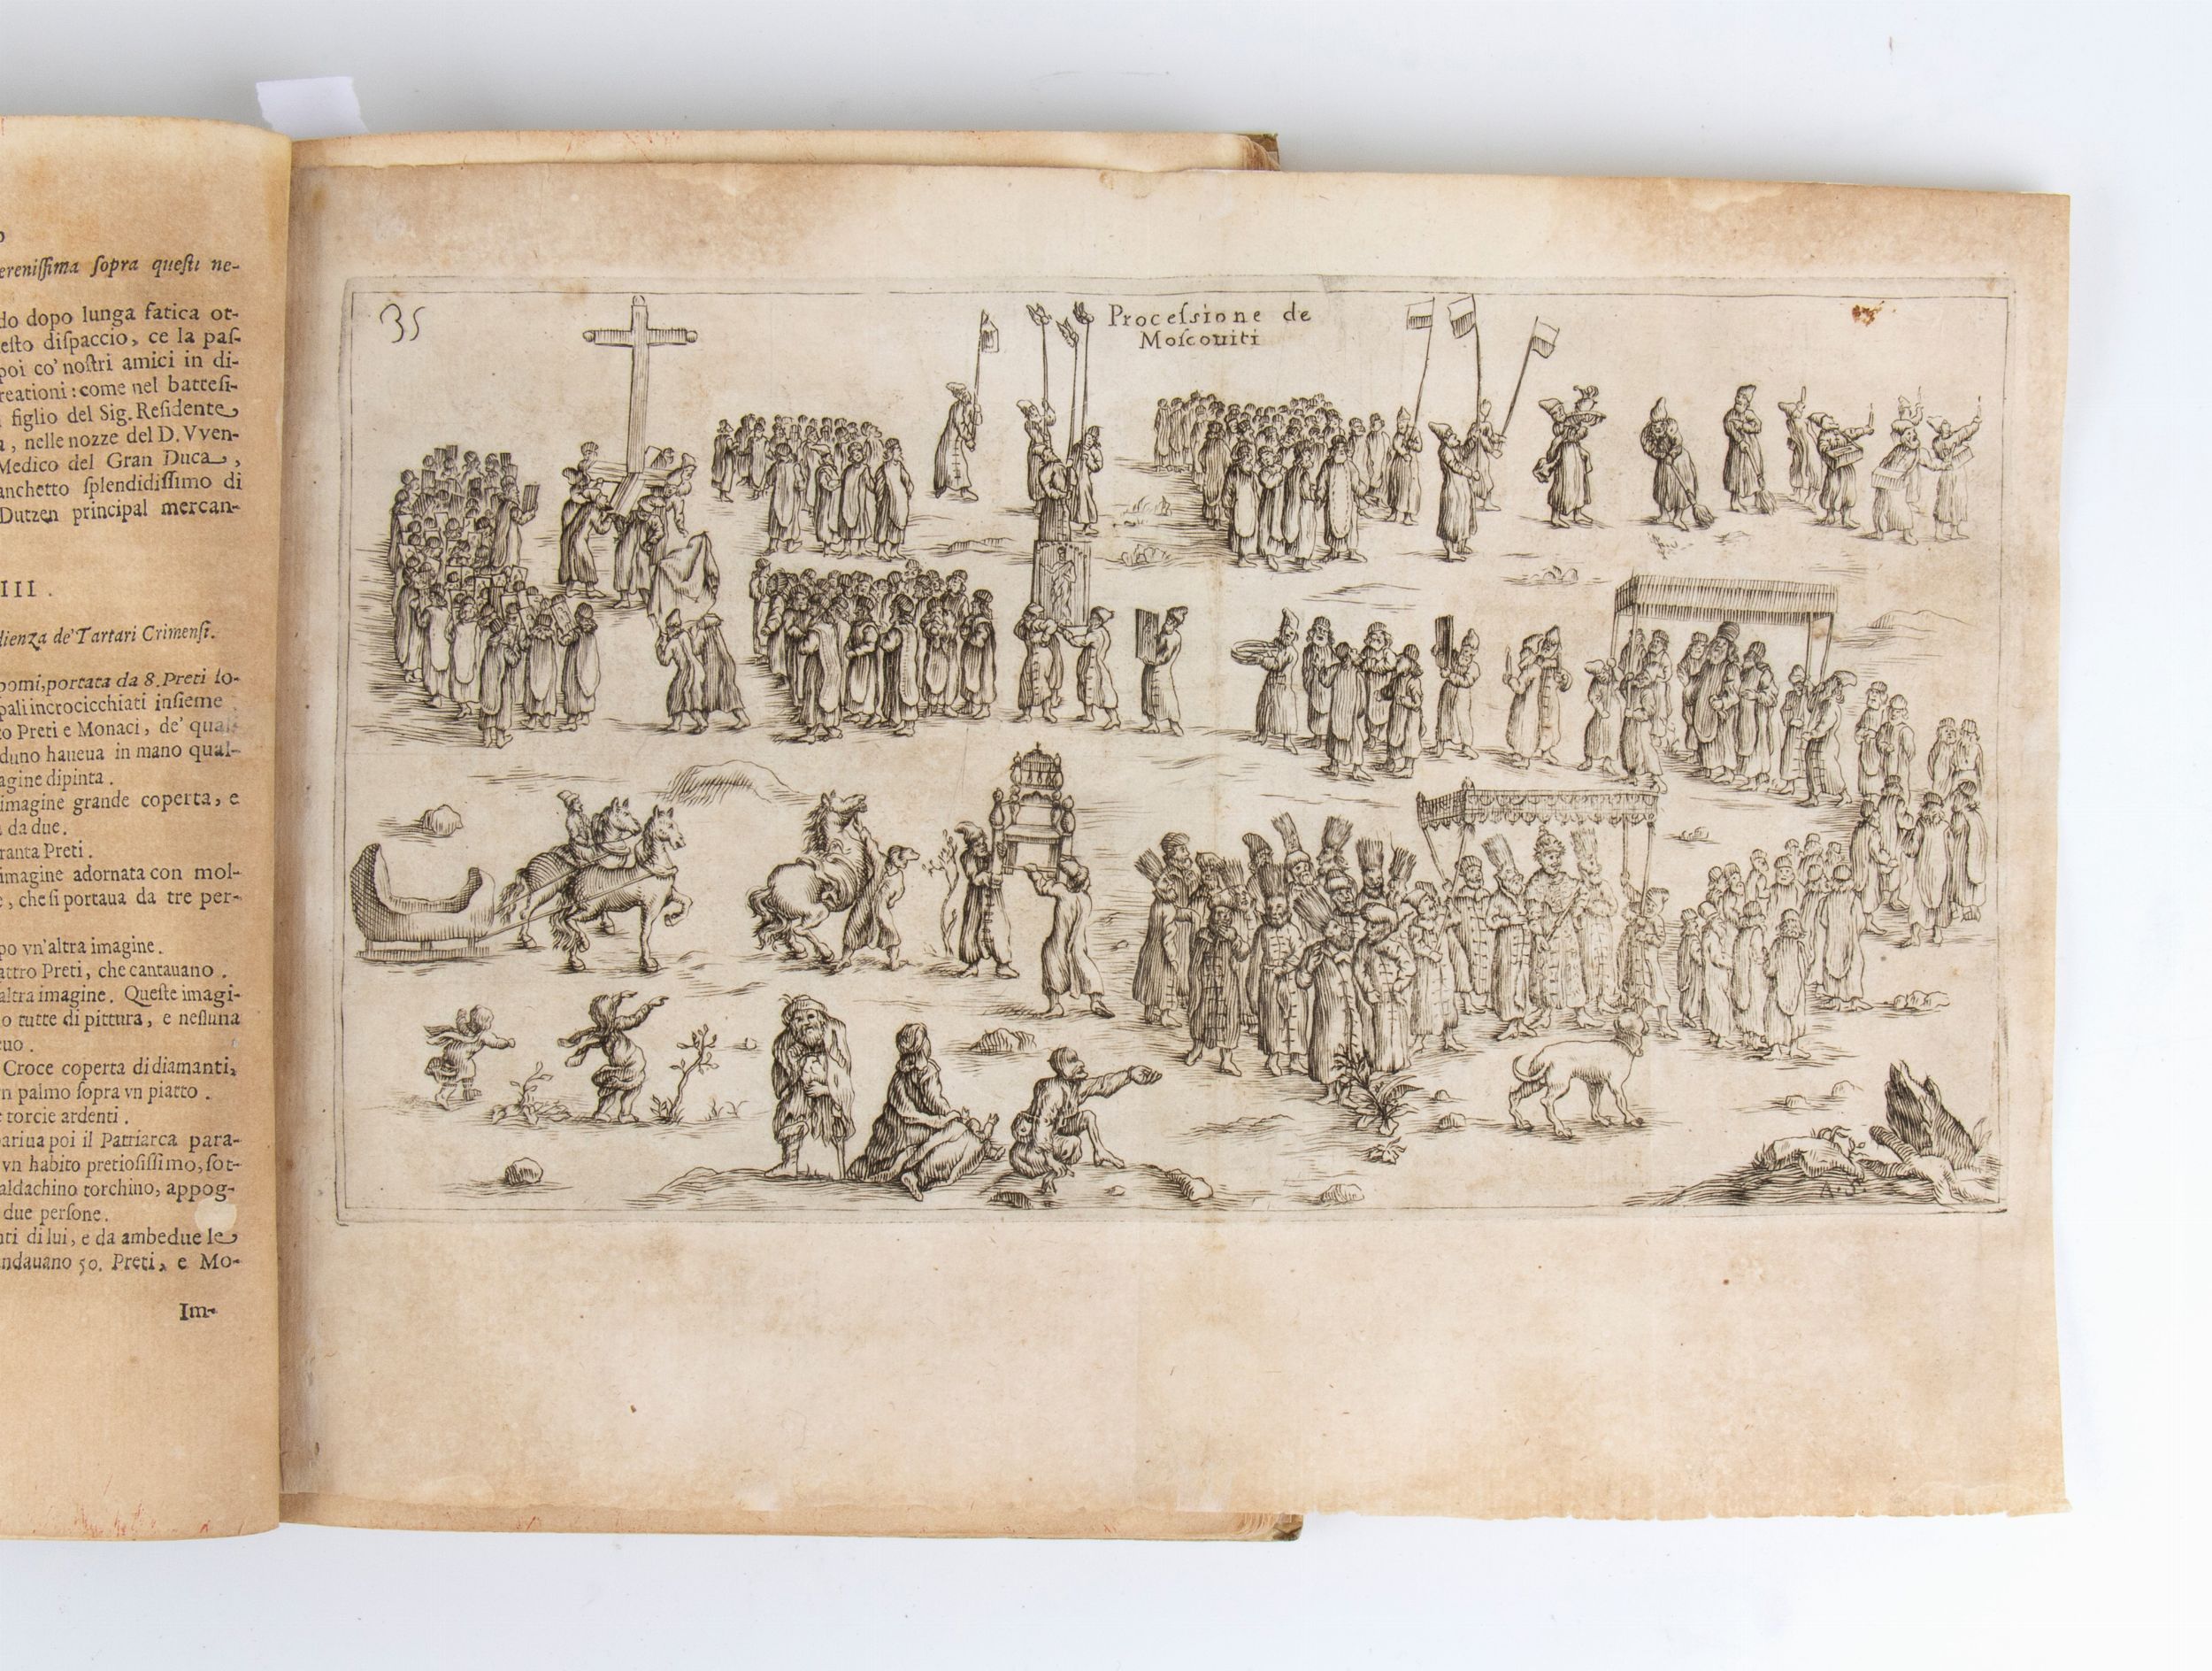 ereniſſima ſopra queſti ne-
do dopo lunga fatica ot-
eſto diſpaccio, ce la paſ-
poi co' noſtri amici in di-
reationi: come nel batteſi-
figlio del Sig. Reſidente
a, nelle nozze del D. Vven-
Medico del Gran Duca,
anchetto ſplendidiſſimo di
Dutzen principal mercan-
III.
dienza de' Tartari Crimenſi.
pomi, portata da 8. Preti ſo-
pali incrocicchiati inſieme
to Preti e Monaci, de' qual
duno haueua in mano qual-
agine dipinta.
imagine grande coperta, e
a da due.
ranta Preti.
imagine adornata con mol-
e, che ſi portaua da tre per-
po vn'altra imagine.
attro Preti, che cantauano.
altra imagine. Queſte imagi-
o tutte di pittura, e neſſuna
euo.
Croce coperta di diamanti,
n palmo ſopra vn piatto.
e torcie ardenti.
pariua poi il Patriarca para-
vn habito pretioſiſſimo, ſot-
aldachino torchino, appog-
due perſone.
nti di lui, e da ambedue le
ndauano 50. Preti, e Mo-
Im-
35
Proceſsione de
Moſcouiti
A. S.